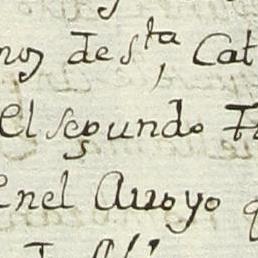 nos de s,ta Cat
El segundo
enel Arroyo q